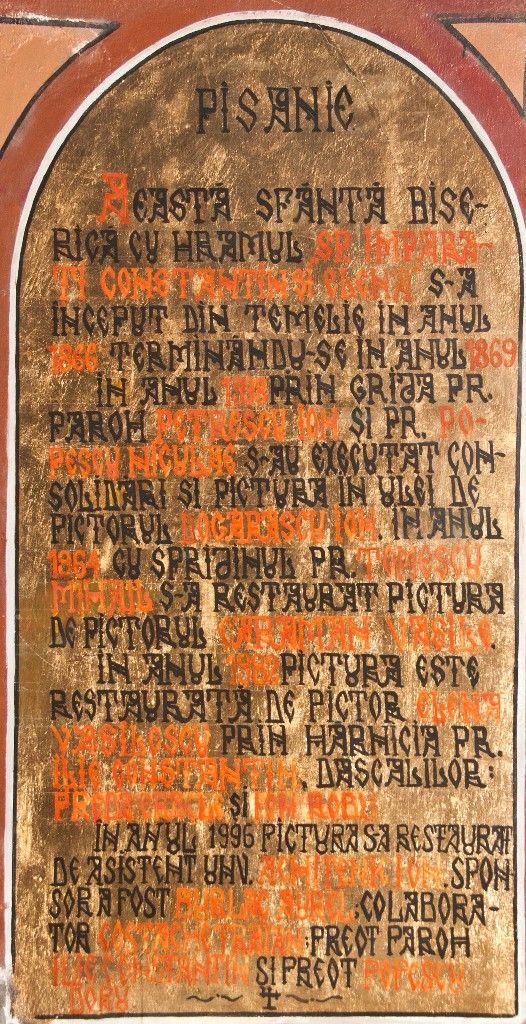 PISANIE
AEASTĂ SFÂNTĂ BISE-
RICĂ CU HRAMUL SF ÎMPĂRA-
ȚI CONSTANTIN ȘI ELENA S-A
ÎNCEPUT DIN TEMELIE ÎN ANUL
1866 TERMINÂNDU-SE ÎN ANUL 1869
ÎN ANUL PRIN GRIJA PR.
PAROH PETRESCU ION ȘI PR. PO-
PESCU NICULAE S-AU EXECUTAT CON-
SOLIDĂRI ȘI PICTURA ÎN ULEI DE
PICTORUL ION. ÎN ANUL
1954 CU SPRIJINUL PR. TOMESCU
MIHAIL S-A RESTAURAT PICTURA
DE PICTORUL CARAMAN VASILE.
ÎN ANUL 1982 PICTURA ESTE
RESTAURATĂ DE PICTOR ELENA
VASILESCU PRIN HĂRNICIA PR.
ILIE CONSTANTIN, DASCĂLILOR:
PREDA ȘI ION ROBU
ÎN ANUL 1996 PICTURA SA RESTAURAT
DE ASISTENT UNV. ION. SPON
SOR A FOST BURLAC AUREL, COLABORA-
TOR COSTACHE TRAIAN; PREOT PAROH
ILIE CONSTANTIN ȘI PREOT POPESCU
DORU